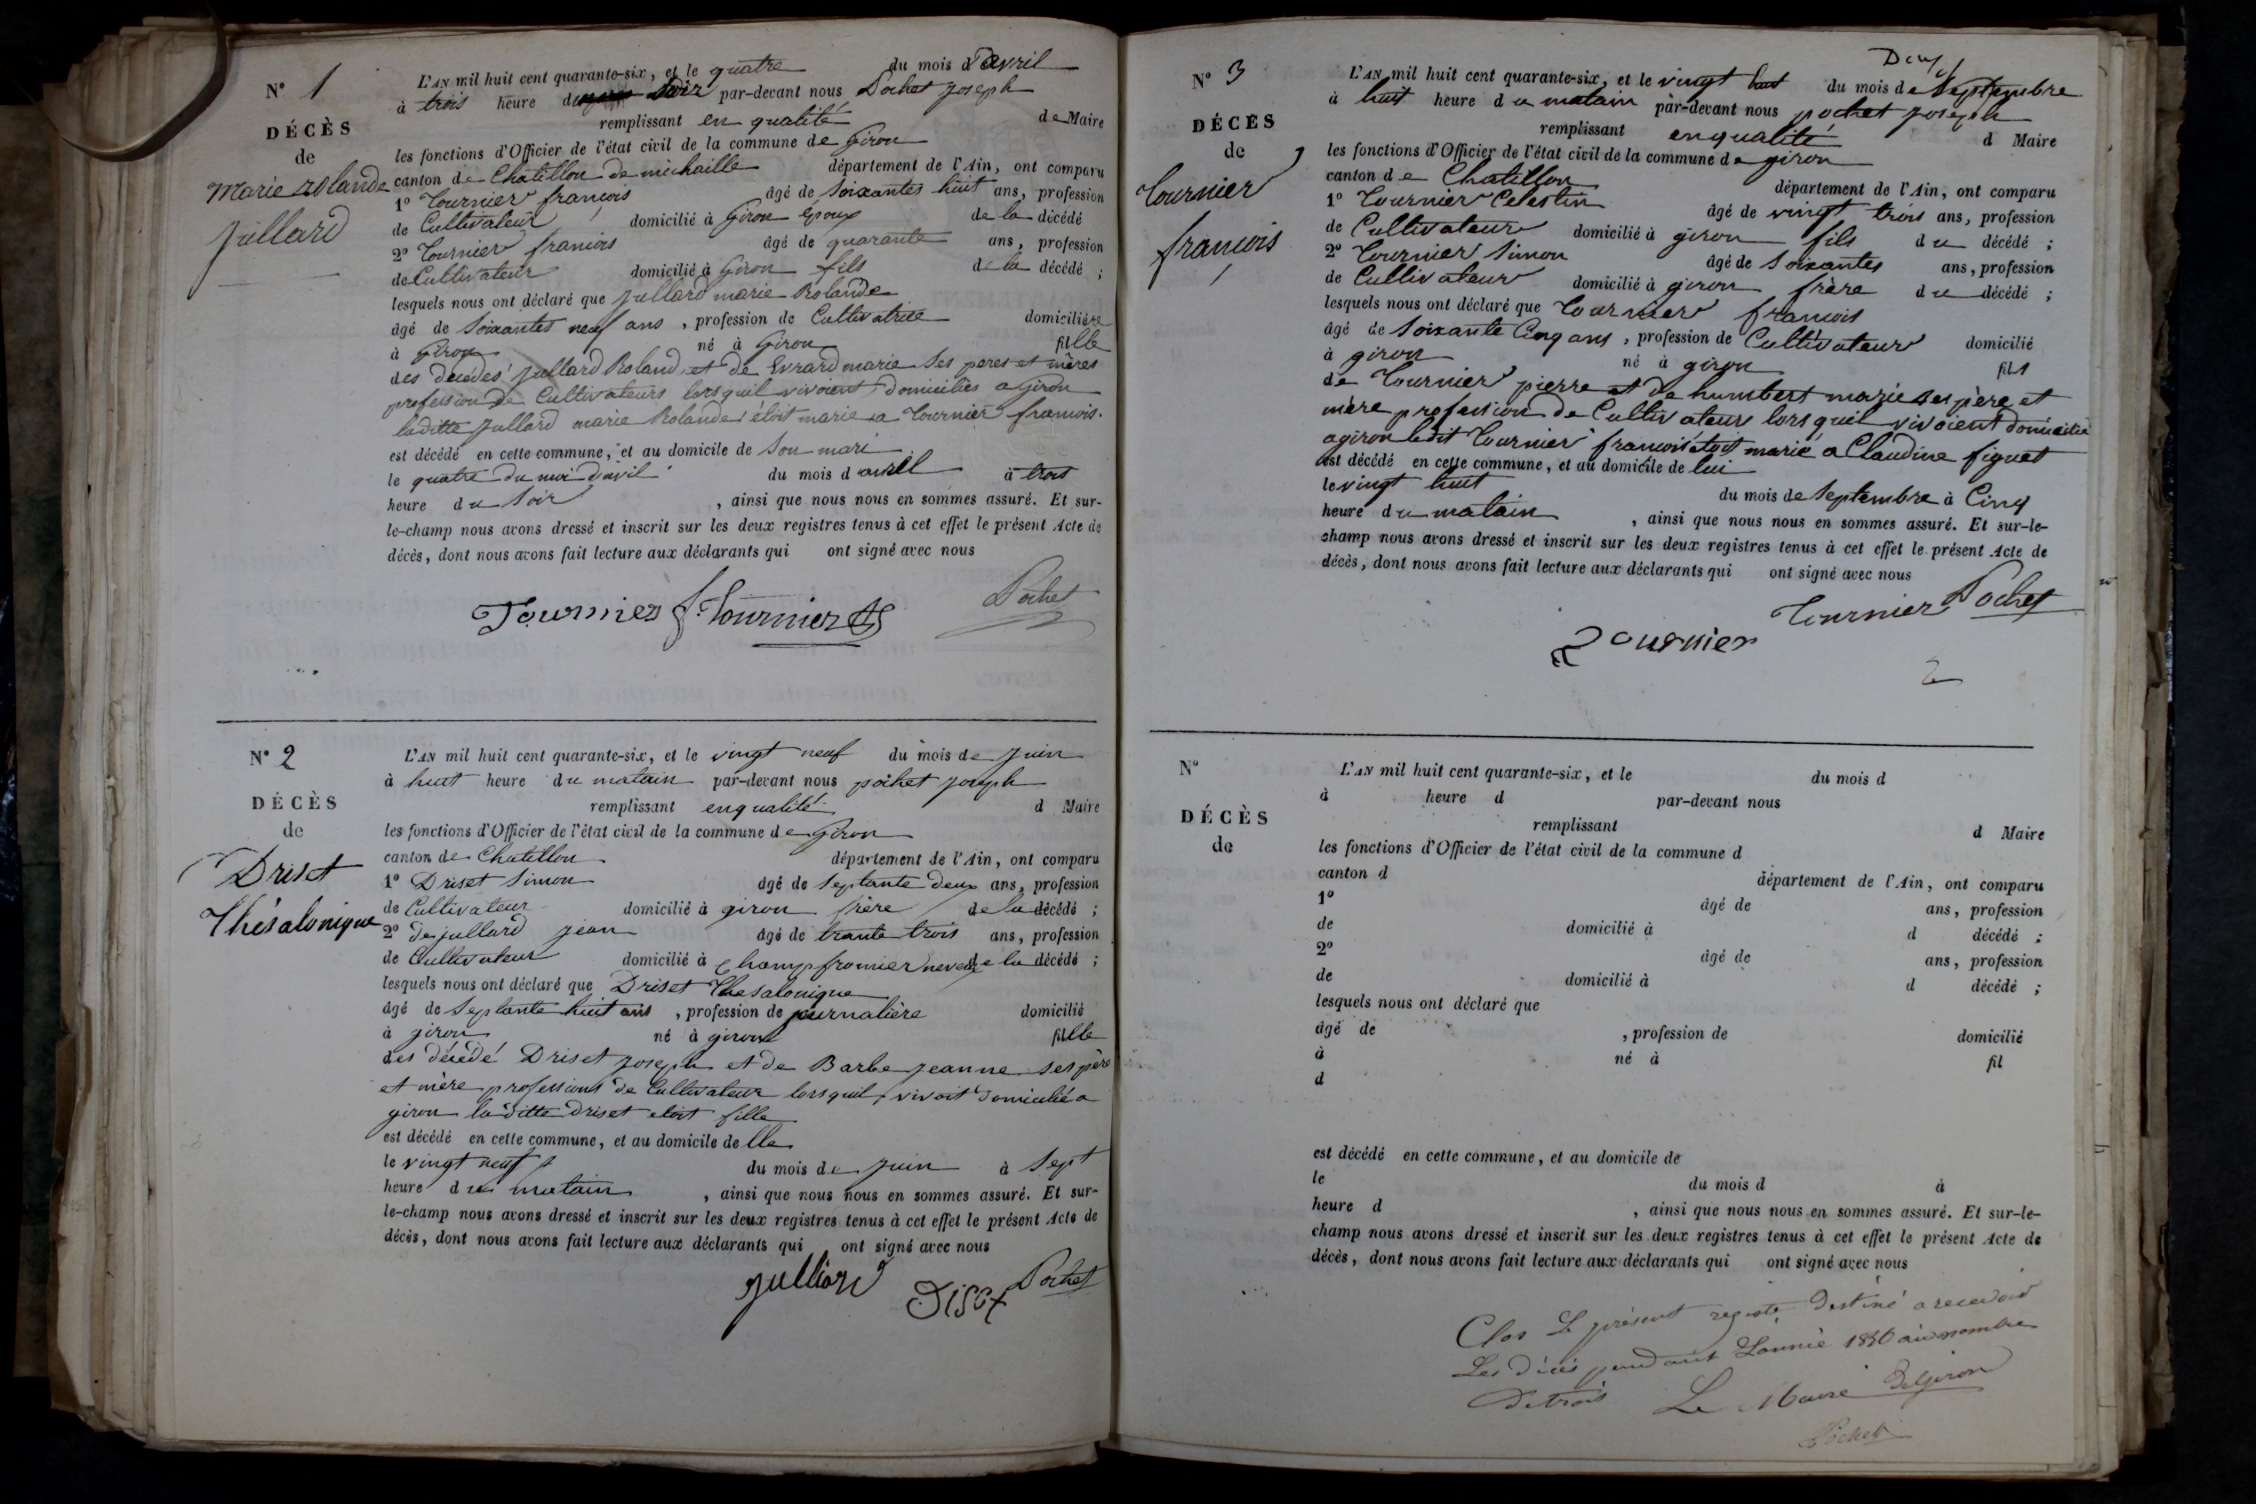 N° 1
DÉCÈS
de
Marie Rolande
Jullard
L'AN mil huit cent quarante-six, et le quatre du mois d'avril
à trois heure du soir par-devant nous Pochet Joseph
remplissant en qualité de Maire
les fonctions d'Officier de l'état civil de la commune de Giron
canton de Chatillon de michaille département de l'Ain, ont comparu
1° Tournier francois âgé de soixantes huit ans, profession
de Cultivateur domicilié à Giron Epoux de la décédé
2° Tournier francois âgé de quarante ans, profession
de Cultivateur domicilié à Giron fils de la décédé ;
lesquels nous ont déclaré que Jullard marie Rolande
âgé de soixantes neuf ans , profession de Cultivatrice domiciliére
à Giron né à Giron fille
des decédés Jullard Roland et de Evrard marie Ses peres et mères
profession de Cultivateurs lorsquil vivoient domicilies a Giron
laditte Jullard marie Rolande étoit marie a Tournier francois.
est décédé en cette commune, et au domicile de Son mari
le quatre du moi davil du mois d avrell à trois
heure du Soir , ainsi que nous nous en sommes assuré. Et sur-
le-champ nous avons dressé et inscrit sur les deux registres tenus à cet effet le présent Acte de
décès, dont nous avons fait lecture aux déclarants qui ont signé avec nous
Tournier f. Tournier Pochet
N° 2
DÉCÈS
de
Driset
Thésalonique
L'AN mil huit cent quarante-six, et le vingt neuf du mois de Juin
à huit heure du matain par-devant nous pochet joseph
remplissant en qualité d Maire
les fonctions d'Officier de l'état civil de la commune de Giron
canton de Chatillon département de l'Ain, ont comparu
1° Driset Simon âgé de Septante deux ans, profession
de Cultivateur domicilié à giron frère de la décédé ;
2° de jullard jean âgé de trante trois ans, profession
de Cultivateur domicilié à Champfromier neveux de la décédé ;
lesquels nous ont déclaré que Driset Thesalonique
âgé de Septante huit ans , profession de journalière domicilié
à giron né à giron fille
des décédé Driset joseph et de Barbe jeanne ses père
et mère professions de Cultivateur lorsquil vivoit domicilié a
giron la ditte Driset etoit fille
est décédé en cette commune, et au domicile delle
le vingt neuf du mois de Juin à Sept
heure du matain , ainsi que nous nous en sommes assuré. Et sur-
le-champ nous avons dressé et inscrit sur les deux registres tenus à cet effet le présent Acte de
décès, dont nous avons fait lecture aux déclarants qui ont signé avec nous
Julliard Diset Pochet
N° 3
DÉCÈS
de
Tournier
francois
L'AN mil huit cent quarante-six, et le vingt huit du mois de Septembre
à huit heure du matain par-devant nous pochet joseph
remplissant en qualité d Maire
les fonctions d'Officier de l'état civil de la commune de giron
canton de Chatillon département de l'Ain, ont comparu
1° Tournier Celestin âgé de vingt trois ans, profession
de Cultivateur domicilié à giron fils du décédé ;
2° Tournier Simon âgé de Soixantes ans, profession
de Cultivateur domicilié à giron frère du décédé ;
lesquels nous ont déclaré que Tournier francois
âgé de Soixante Cinq ans , profession de Cultivateur domicilié
à giron né à giron fils
de Tournier pierre et de humbert marie ses père et
mère profession de Cultivateur lorsquil vivoient domicilié
a giron ledit Tournier francois étoit marié a Claudine figuet
est décédé en cette commune, et au domicile de lui
le vingt huit du mois de Septembre à Cinq
heure du matain , ainsi que nous nous en sommes assuré. Et sur-le-
champ nous avons dressé et inscrit sur les deux registres tenus à cet effet le présent Acte de
décès, dont nous avons fait lecture aux déclarants qui ont signé avec nous
Tournier Pochet
Tournier
N°
DÉCÈS
de
L'AN mil huit cent quarante-six, et le du mois d
à heure d par-devant nous
remplissant d Maire
les fonctions d'Officier de l'état civil de la commune d
canton d département de l'Ain, ont comparu
1° âgé de ans, profession
de domicilié à d décédé ;
2° âgé de ans, profession
de domicilié à d décédé ;
lesquels nous ont déclaré que
âgé de , profession de domicilié
à né à fil
d
est décédé en cette commune, et au domicile de
le du mois d à
heure d , ainsi que nous nous en sommes assuré. Et sur-le-
champ nous avons dressé et inscrit sur les deux registres tenus à cet effet le présent Acte de
décès, dont nous avons fait lecture aux déclarants qui ont signé avec nous
Clos Le présent registe destiné a recevoir
Les décés pendant L'année 1846 au nombre
De trois Le Maire De Giron
Pochet